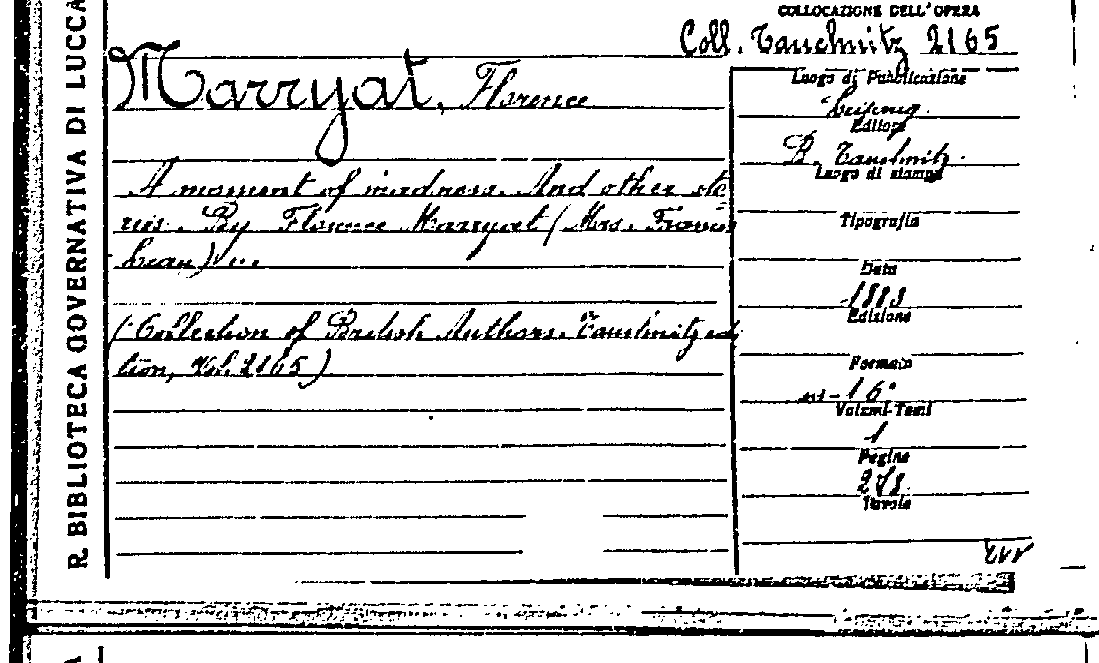 R. BIBLIOTECA GOVERNATIVA DI LUCCA
COLLOCAZIONE DELL'OPERA
Coll. Tauchnitz 2165
Marryat, Florence
A moment of madness. And other sto
ries. By Florence Marryat (Mrs. Francis
Lean) ...
(Collection of British Authors. Tauchnitz edi
tion, Vol. 2165)
Luogo di Pubblicazione
Leipzig
Editore
B. Tauchnitz
Luogo di stampa
Tipografia
Data
1883
Edizione
Formato
in-16°
Volumi-Tomi
1
Pagine
Tavole